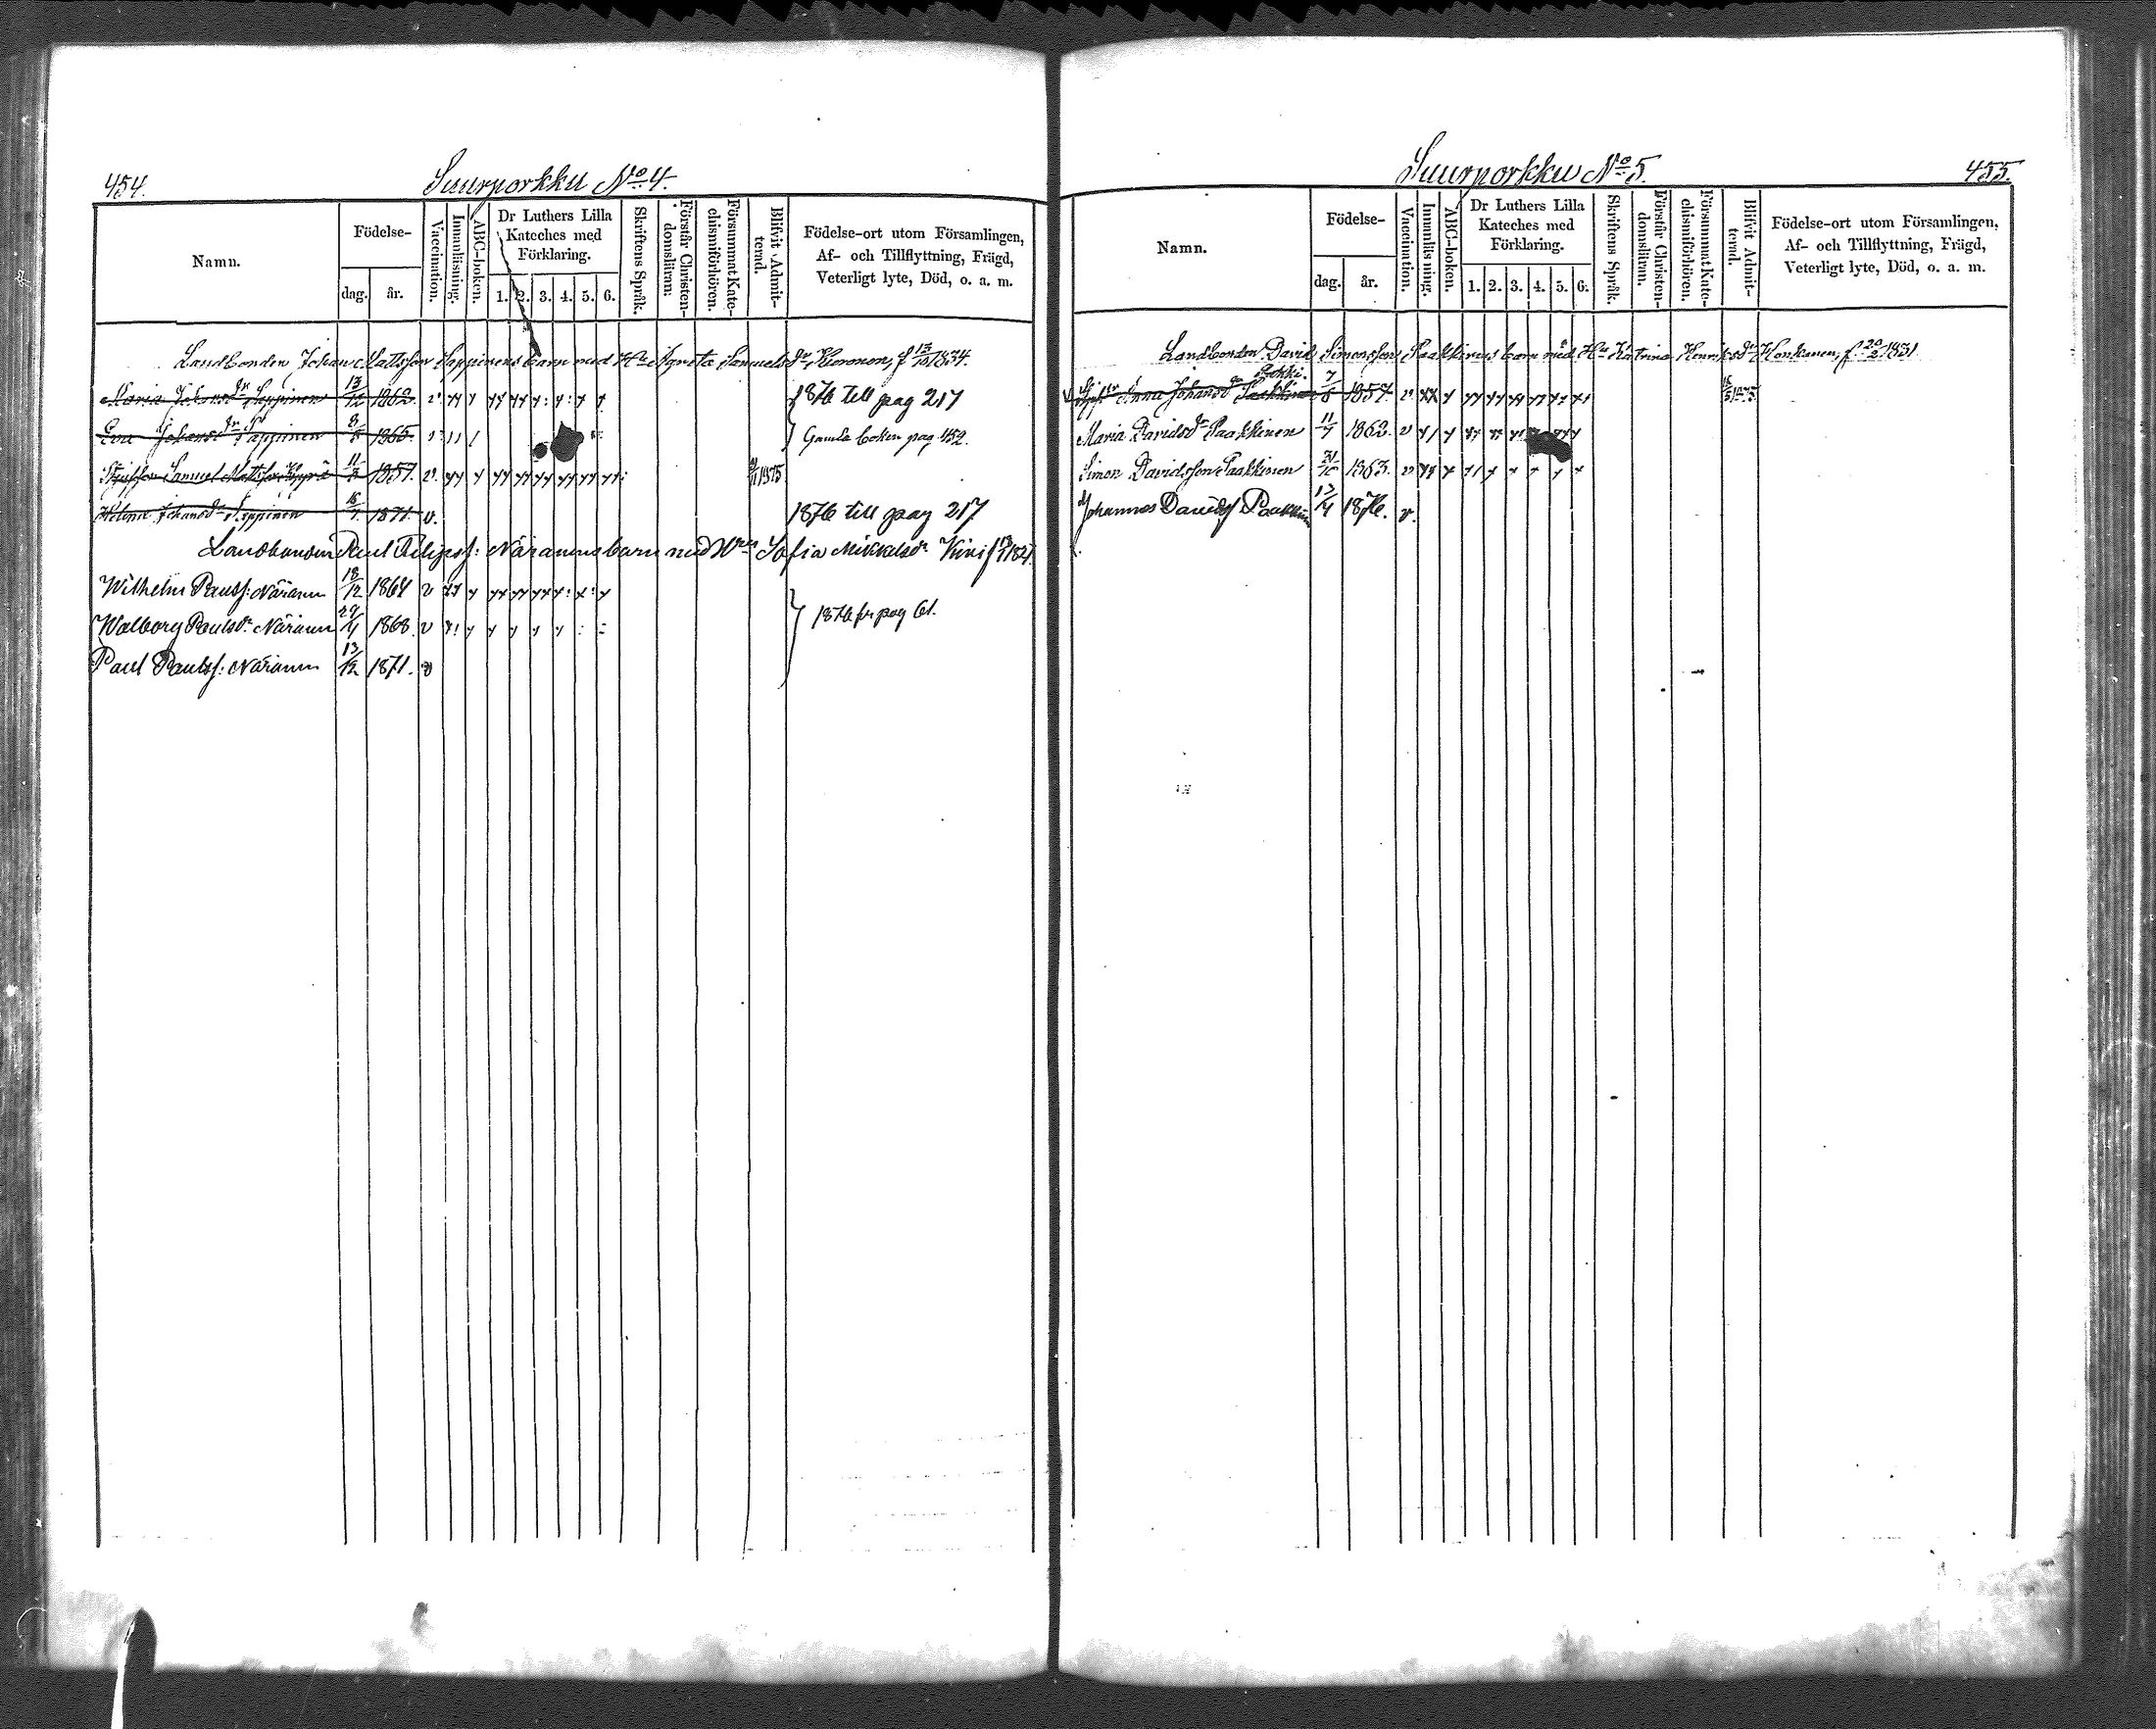 454.
Suurporkku No 4.
Namn.
Födelse-
dag.
år.
Vaccination.
Innanläsning.
ABC-boken.
Dr Luthers Lilla
Kateches med
Förklaring.
1. 2. 3. 4. 5. 6.
Skriftens Språk.
Förstår Christen-
domsläran:
Försummat Kate-
chismiförhören.
Blifvit Admit-
terad.
Födelse-ort utom Församlingen,
Af- och Tillflyttning, Frägd,
Veterligt lyte, Död, o. a. m.
Landbonden Johan Mattsson Seppinens barn med Hu Agneta Samuelsdr, f 13/10 1834.
Maria Johansdr Seppinen 13/12 1862 v 1876 till pag 217
Eva Johansdr Seppinen 1865 Gamla boken pag 452.
Samuel Mattsson 11/ 1857 v. 1875
Helena Johansdr Seppinen 1871 v. 1876 till pag 217
Landbonden Paul Filipsf: Näränens barn med Sofia Mikkelsdr
Wilhelm Paulsf: Näränen 18/12 1864 v
Walborg Paulsdr Näränen 29/4 1868 v 1876 fr pag 61.
Paul Paulsf: Näränen 13/12 1871. v
Suurporkku No 5.
455.
Namn.
Födelse-
dag.
år.
Vaccination.
Innanläsning.
ABC-boken.
Dr Luthers Lilla
Kateches med
Förklaring.
1. 2. 3. 4. 5. 6.
Skriftens Språk.
Förstår Christen-
domsläran.
Försummat Kate-
chismiförhören.
Blifvit Admit-
terad.
Födelse-ort utom Församlingen,
Af- och Tillflyttning, Frägd,
Veterligt lyte, Död, o. a. m.
Landbonden David Simonsson Paakkinens barn med Hu Katrina Henriksdr Honkanen, f. 20/2 1831
Anna Johansdr 7/8 1857 v
Maria Davidsdr Paakkinen 11/7 1862. v
Simon Davidsson Paakkinen 31/10 1863. v
Johannes Davidsf Paakkinen 13/4 1876. v.